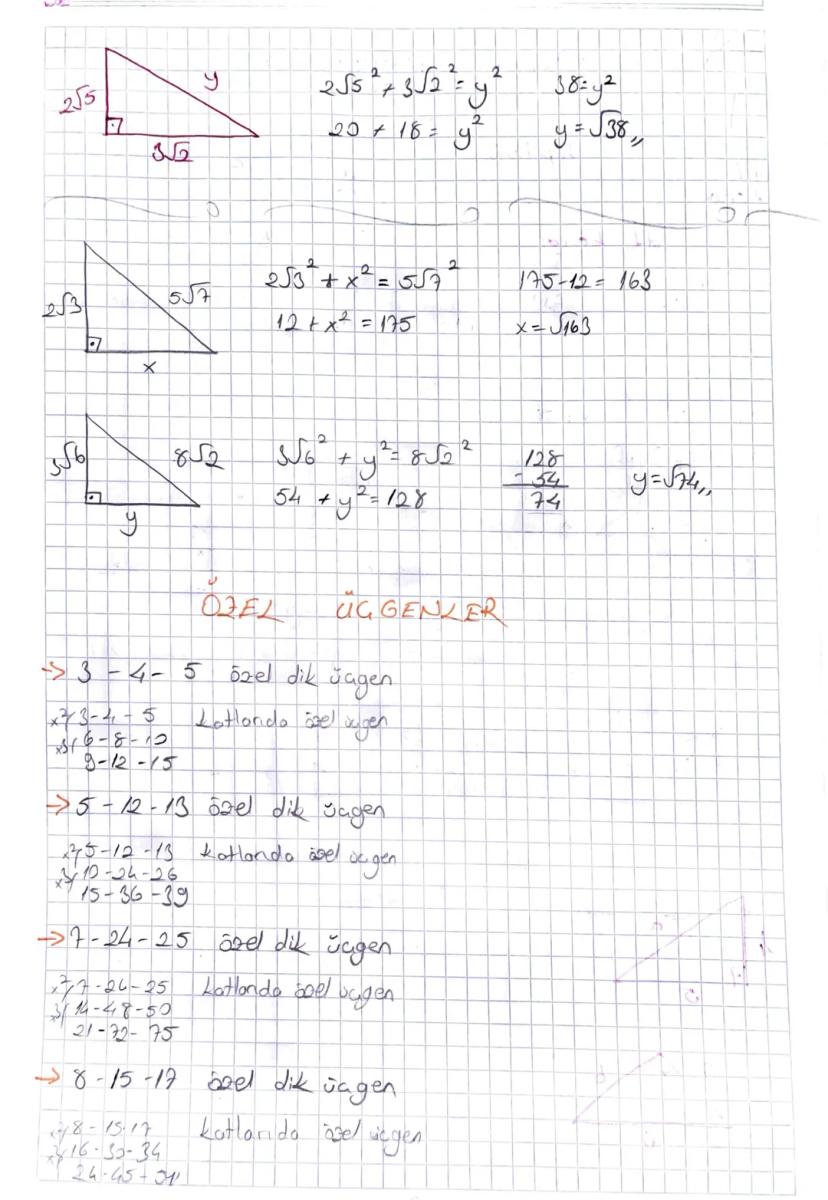 y
2√5² + 3√2² = y² 38 = y²
2√5
20 + 18 = y² y = √38,,
3√2
2√3² + x² = 5√7² 175-12 = 163
2√3 5√7
12 + x² = 175 x = √163
x
3√6 8√2 3√6² + y² = 8√2² 128
- 54
74
y = √74,,
54 + y² = 128
y
ÖZEL ÜÇGENLER
→ 3 - 4 - 5 özel dik üçgen
x2 3-4-5 katlarıda özel üçgen
x3 6-8-10
9-12-15
→ 5-12-13 özel dik üçgen
x2 5-12-13 katlarıda özel üçgen
x3 10-24-26
15-36-39
→ 7-24-25 özel dik üçgen
x2 7-24-25 katlarıda özel üçgen
x3 14-48-50
21-72-75
→ 8-15-17 özel dik üçgen
8-15-17 katlarıda özel üçgen
16-30-34
24-45-